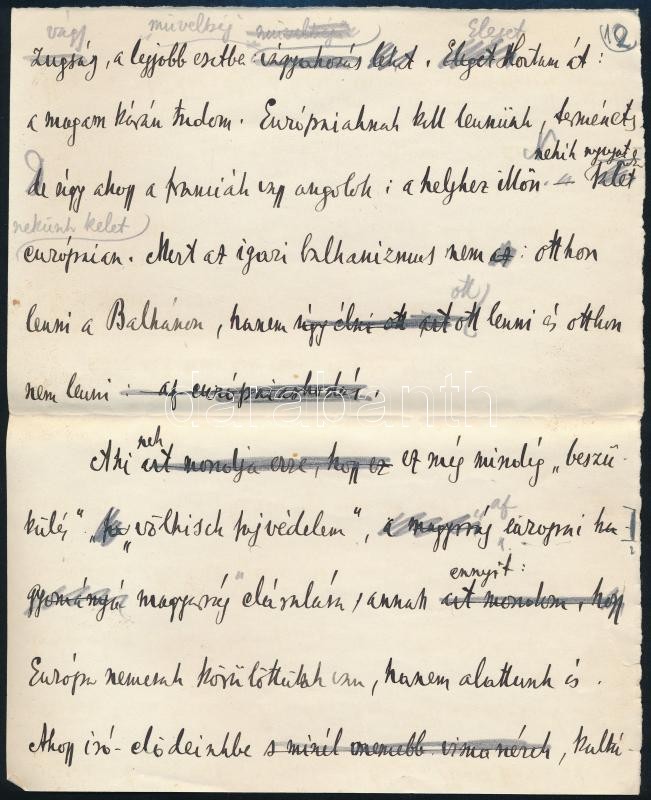 vágy műveltség Eleget 12
zugság, a legjobb esetbe vágyakozás lehet. Eleget Hortam át:
a magam kárán tudom. Európaiaknak kell lennünk, természets
nekik nyugat
de úgy ahogy a franciák vagy angolok: a helyhez illőn – kelet
nekünk kelet
európaian. Mert az igazi balkanizmus nem az: otthon
ott
lenni a Balkánon, hanem úgy élni ott, azt ott lenni és otthon
nem lenni – az európaiaskodás.
nek
Aki azt mondja erre, hogy ez ez még mindég „beszü-
külés", „völkisch fajvédelem", a magyarság európai ha-
az
ennyit:
gyománya magyarság elárulása, annak azt mondom, hogy
Európa nemcsak körülöttünk van, hanem alattunk is.
Ahogy író-elődeinkbe s minél messzebb visszanézek, kultú-
darabanth